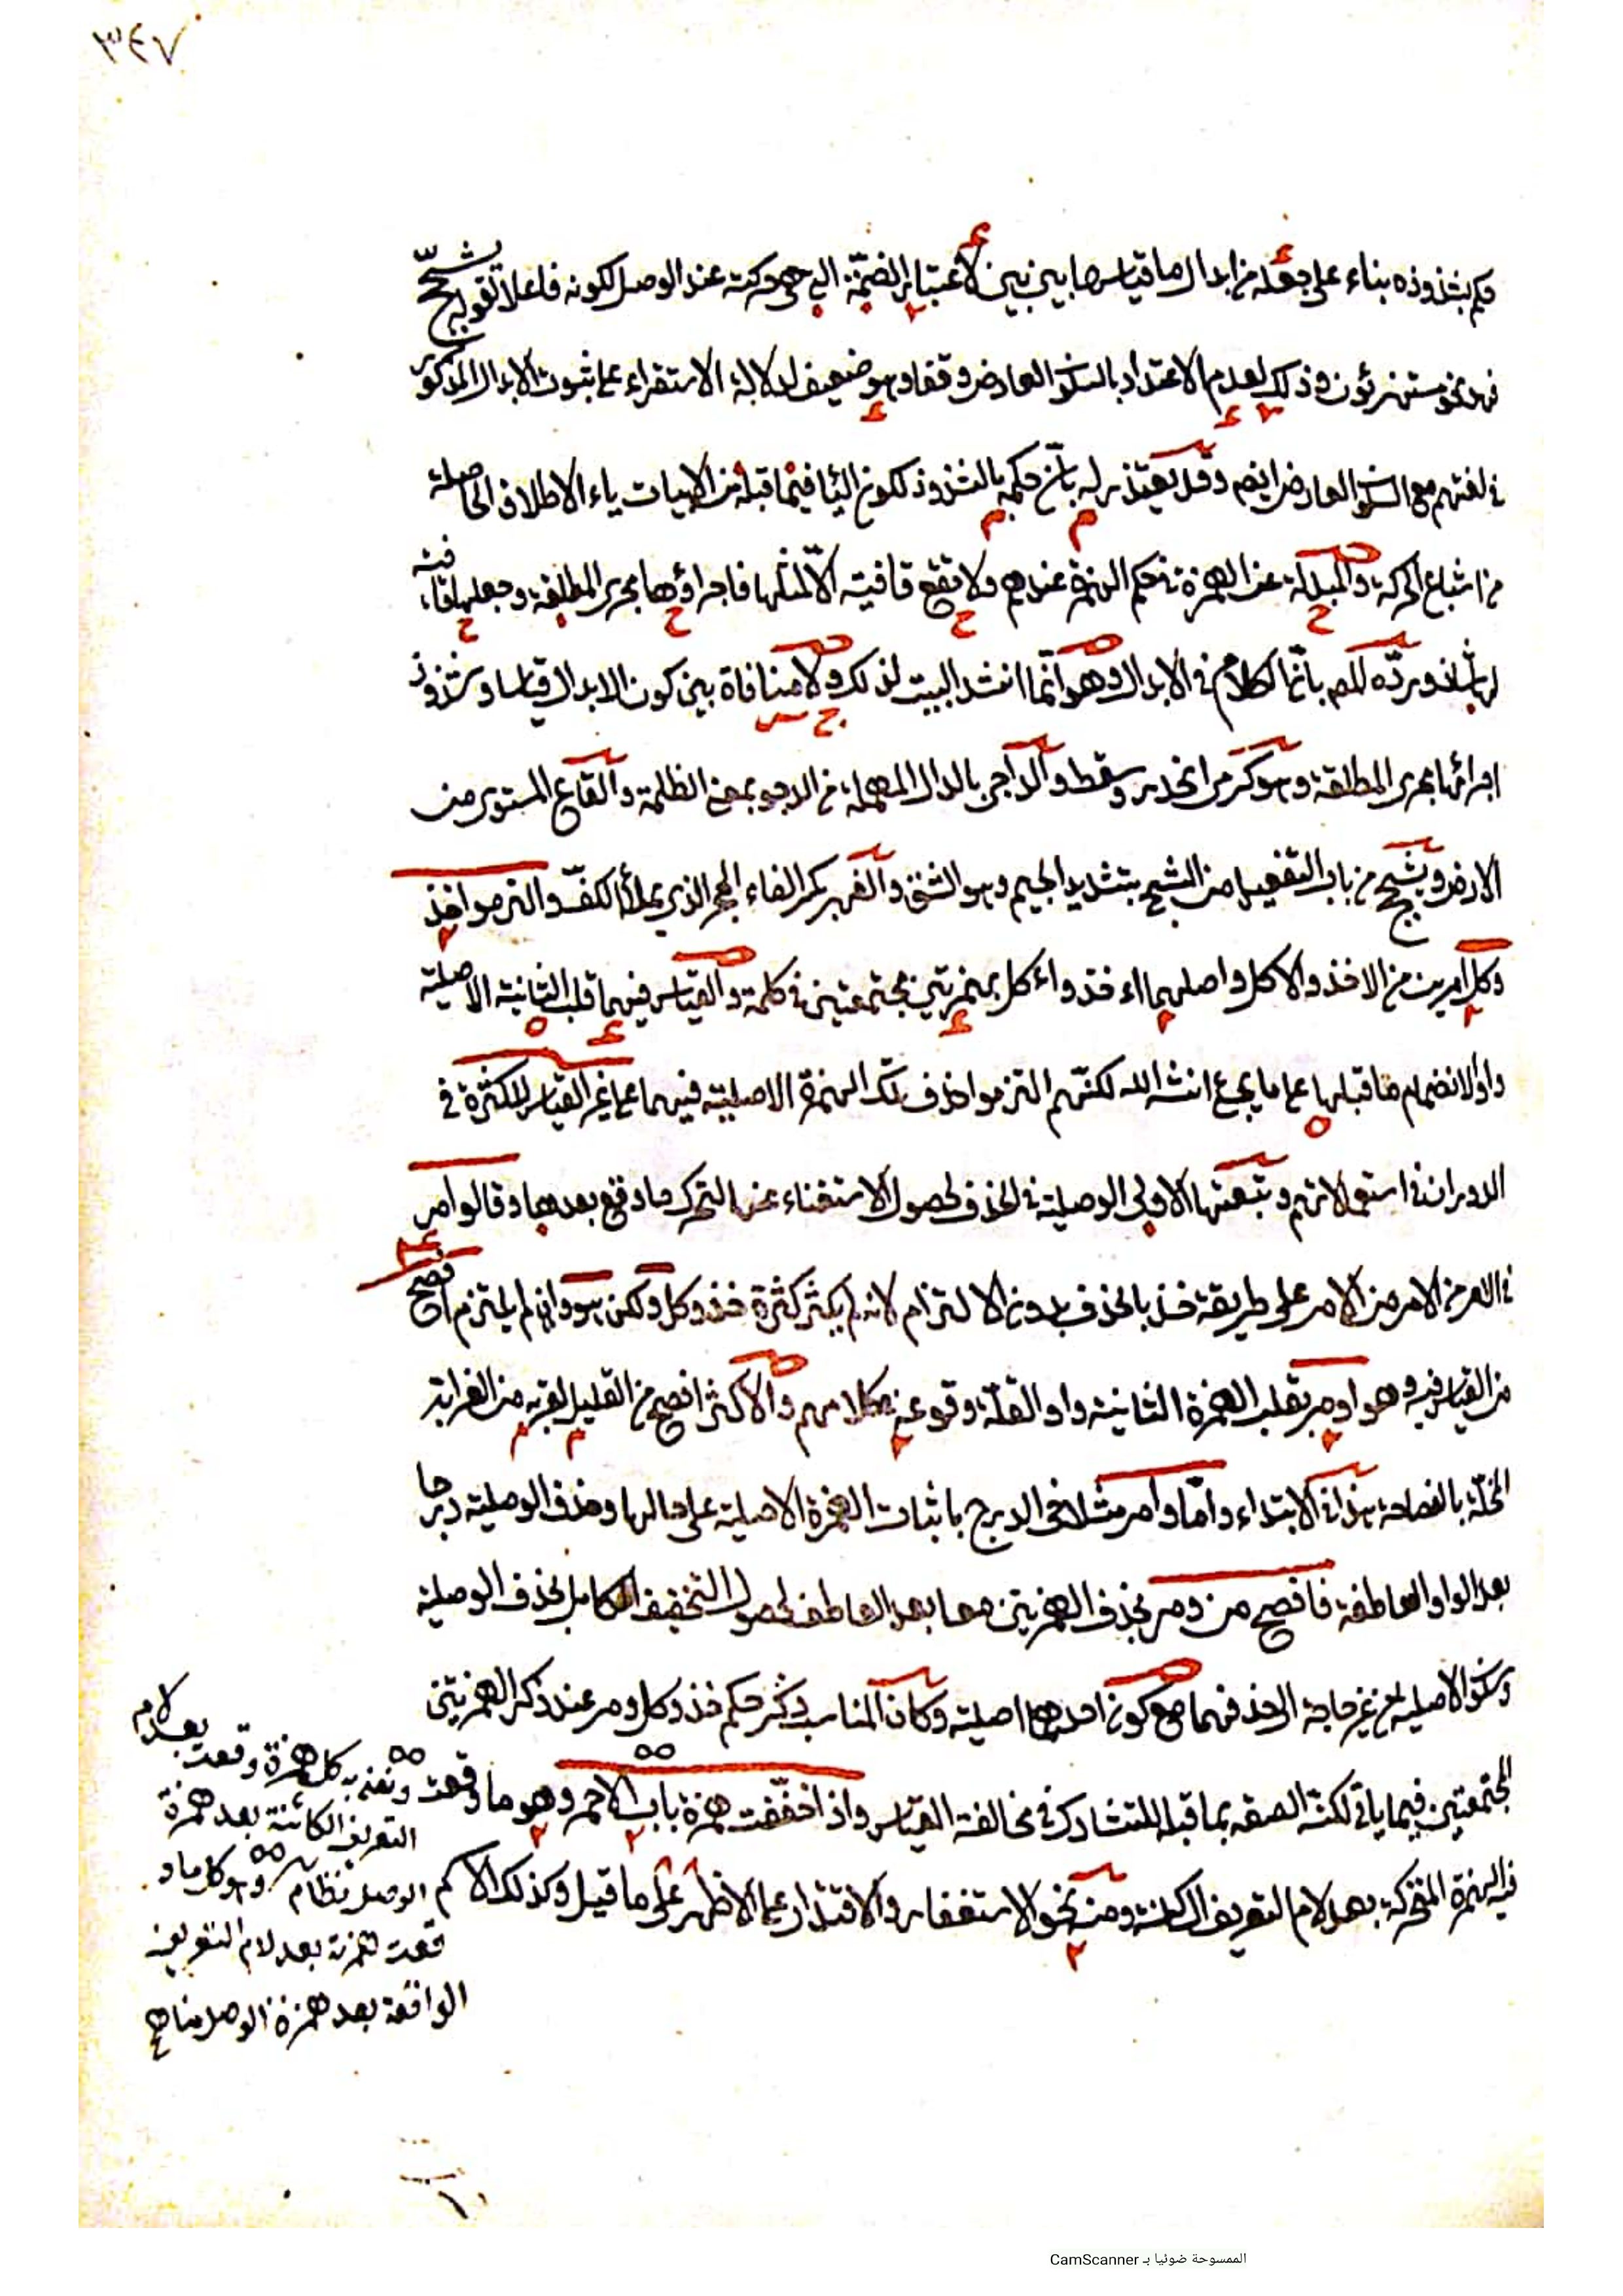 ٣٤٧
حكم بشذوذه بناء على جعله من ابدال ما قياسها بين بين لاعتبار الضمّة التي هي حركته عند الوصل لكونه فاعلا تقوله يشجّج
فهو نحو مستهزئون وذلك لعدم الاعتداد بالسكون العارض وقفا وهو ضعيف لدلالة الاستقراء على ثبوت الابدال المذكور
في لغتهم مع السكون العارض ايضم وقد يعتذر له بانّ حكمه بالشذوذ لكون اليا فيما قبله من الابيات ياء الاطلاق الحاصلة
من اشباع الحركة والمبدلة عن الهمزة في حكم الهمزة عندهم ولا تقع قافية الّا لمثلها فاجراؤها مجرى المطلقة وجعلها قافية
لها شاذ وردّه المص بانّ الكلام في الابدال وهو انّما انشد البيت لذلك ولا منافاة بين كون الابدال قياسا وشذوذ
اجرائها مجرى المطلقة وهو كرمى انحدر وسقط والداجى بالدال المهملة من الدجو بمعنى الظلمة والقاع المستوى من
الارض ويشجج من باب التفعيل من الشج بتشديد الجيم وهو الشق والفهر بكسر الفاء الحجر الذي يملأ الكفّ والتزموا خذ
وكل امرين من الاخذ والاكل واصلهما اءخذ واءكل بهمزتين مجتمعتين في كلمة والقياس فيهما قلب الثانية الاصلية
واوا لانضمام ما قبلها على ما يجئ انشاء الله لكنّهم التزموا حذف تلك الهمزة الاصلية فيهما على غير القياس للكثرة في
الدوران في استعمالاتهم وتبعتها الاولى الوصلية في الحذف لحصول الاستغناء عنها لتحرك ما وقع بعدها وقالوا مر
في الامر من الامر على طريقة خذ بالحذف بدون الالتزام لانه لم يكثر كثرة خذ وكل ولكن هو وان لم يلتزم افصح
من القياس فيه وهو اومر بقلب الهمزة الثانية واوا لقلّة وقوعه في كلامهم والاكثر افصح من القليل لقربه من الغرابة
المخلّة بالفصاحة هذا في الابتداء وامّا وامر مثلا في الدرج باثبات الهمزة الاصلية على حالها وحذف الوصلية درجا
بعد الواو العاطفة فافصح من ومر بحذف الهمزتين معا بعد العاطف لحصول التخفيف الكامل بحذف الوصلية
وسكون الاصلية من غير حاجة الى حذفهما مع كون احدهما اصلية وكان المناسب ذكر حكم خذ وكل ومر عند ذكر الهمزتين
المجتمعتين فيما ياتي لكنّه الصقه بما قبله للتشارك في مخالفة القياس واذا خفّفت همزة باب الاحمر وهو ما وقعت
فيه الهمزة المتحركة بعد لام التعريف الساكنة ومنه نحو الاستغفار والاقتدار على الاظهر على ما قيل وكذلك الاكم
ونعنى به كل همزة وقعت بعد لام
التعريف الكائنة بعد همزة
الوصل نظام وهو كل ما و
قعت همزته بعد لام التعريف
الواقعة بعد همزة الوصل مناهج
الممسوحة ضوئيا بـ CamScanner